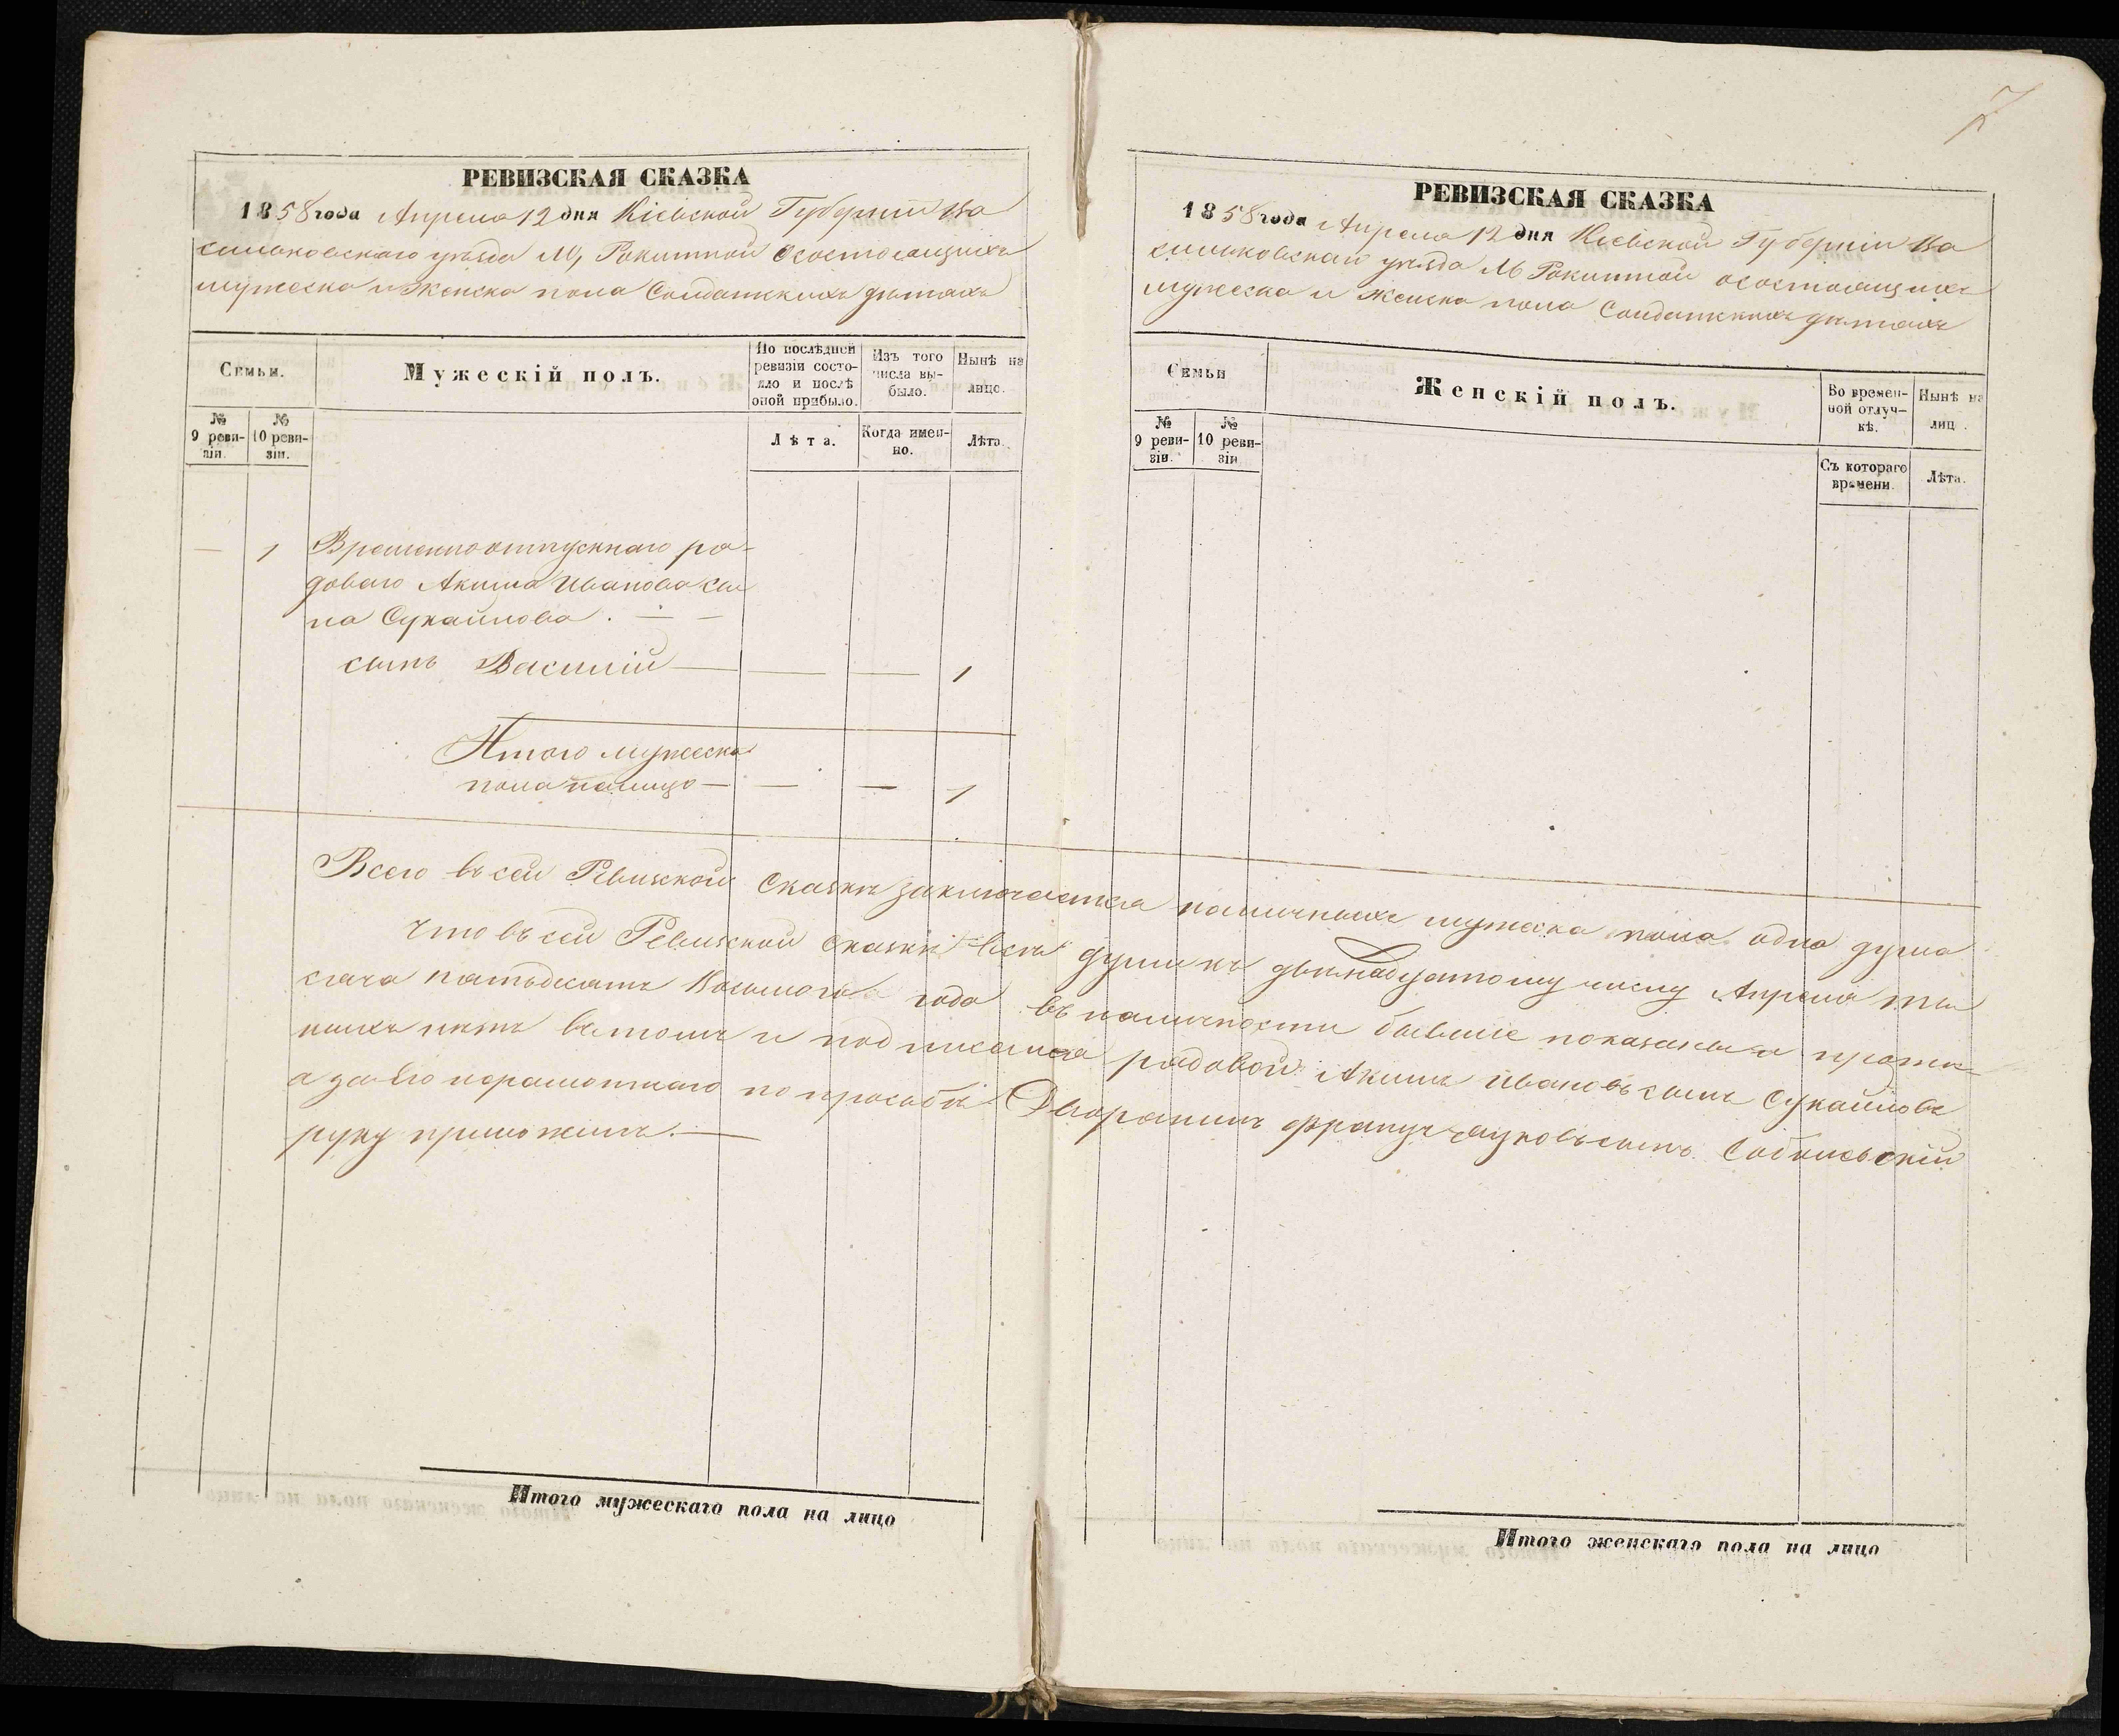 7
РЕВИЗСКАЯ СКАЗКА
1858 года Апреля 12 дня Кіевской Губерніи Ва
сильковскаго уѣзда М, Рокитной осостоящихъ
мужеска и Женска пола Солдатскихъ дѣтяхъ
Семьи.
Мужескій полъ.
По послѣдней ревизіи состояло и послѣ оной прибыло.
Изъ того числа выбыло.
Нынѣ на лицо.
№ 9 ревизіи.
№ 10 ревизіи.
Лѣта.
Когда именно.
Лѣта.
— 1 Временноотпускнаго ря-
доваго Акима Иванова сы
на Сукайлова. — —
сынъ Василій — — — 1
Итого мужеска
пола налицо — — — 1
РЕВИЗСКАЯ СКАЗКА
1858 года Апреля 12 дня Кіевской Губерніи Ва
сильковскаго уѣзда М Рокитной осостоящихъ
мужеска и Женска пола Солдатскихъ дѣтяхъ
Семьи
Женскій полъ.
Во временной отлучкѣ.
Нынѣ на лиц.
№ 9 ревизіи.
№ 10 ревизіи
Съ котораго времени.
Лѣта.
Всего въ сей Ревизской Сказкѣ заключается наличныхъ мужеска пола одна душа
Что въ сей Ревизской Сказкѣ всѣ души къ двѣнадцатому числу Апреля ты
сяча пятьдесятъ Восьмого года въ наличности бывшіе показаны и
нихъ нѣтъ вътомъ и подписался рядовой Акимъ Ивановъ сынъ Сукайловъ
а за его неграмотнаго по прозьбѣ Дворянинъ Францъ сынъ
руку приложилъ. —
Итого мужескаго пола на лицо
Итого женскаго пола на лицо